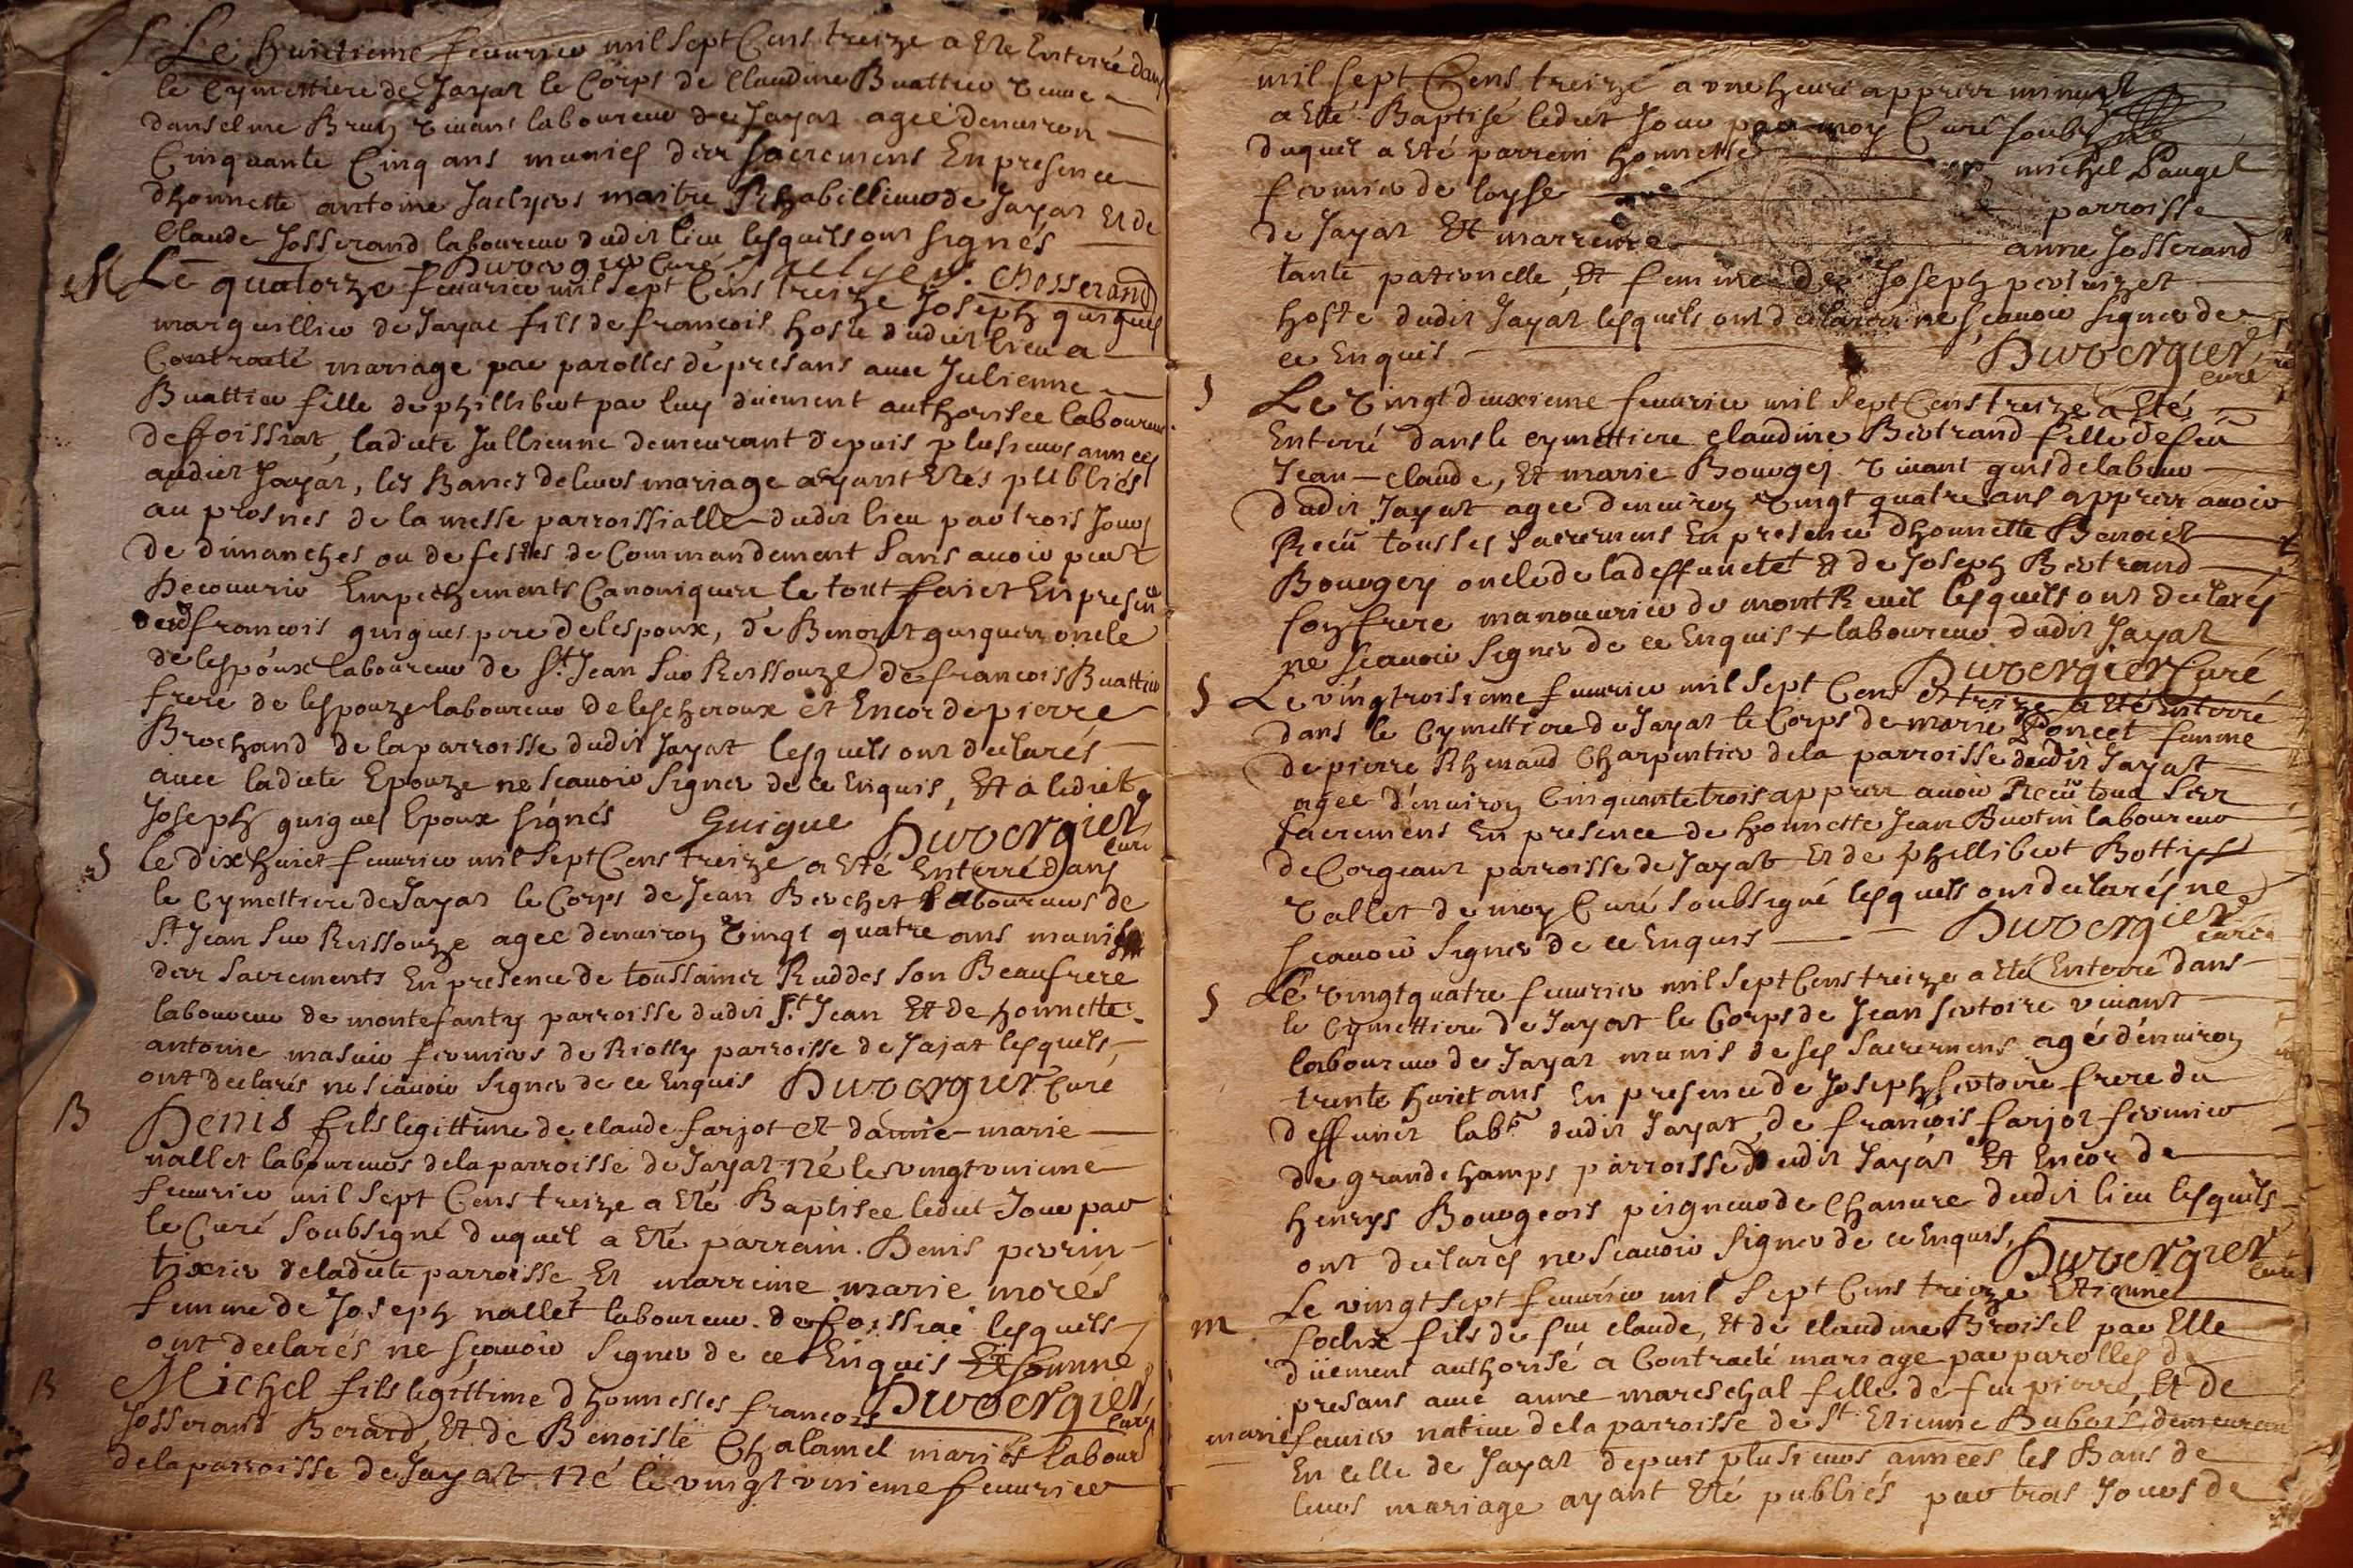 S Le huictieme feuurier mil sept Cens treize a ete Enterré dans
le Cymettiere de Jayat le Corps de Claudine Buattier veuue
danselme Brun viuant laboureur de Jayat agée denuiron
Cinquante Cinq ans munies des sacremens En presence
dhonneste antoine Jaclyers maitre Rhabilleur de Jayat Et de
Claude Josserand laboureur dudit lieu lesquels ont signés
Duvergier Curé Jaclyer. C Josserand
M Le quatorze feuurier mil sept Cens treize Joseph guigues
marguillier de Jayat fils de francois hoste dudit lieu a
Contracté mariage par parolles de presans auec Julienne
Buattier fille de phillibert par luy düement authorisée laboureur
de ffoissiat, ladicte Jullienne demeurant depuis plusieurs années
audict Jayat, les Bancs de leurs mariage ayant Etés publiés
au prosnes de la messe parroissialle dudit lieu par trois Jours
de dimanches ou de festes de Commandement sans auoir peut
Decouurir Empechements Canoniques le tout faict En presence
dud francois guigues pere de lespoux, de Benoist guigues oncle
de lespoux laboureur de St Jean sur Reissouze de francois Buattier
frere de lespouze laboureur de lescheroux et Encor de pierre
Brochand de la parroisse dudit Jayat lesquels ont declarés
auec ladicte Epouze ne scauoir signer de ce Enquis, Et a ledict
Joseph guigues Epoux signés Guigue Duvergier
curé
S le dix huict feuurier mil sept Cens treize a Eté Enterré dans
le Cymettiere de Jayat le Corps de Jean Berchet laboureurs de
St Jean sur Reissouze agee denuiron vingt quatre ans munis
des sacrements En presence de toussainct Ruddes son Beaufrere
laboureur de montefanty parroisse dudit St Jean Et de honneste
antoine masuir fermiers de Riolly parroisse de Jajat lesquels,
ont declarés ne scauoir signer de ce Enquis Duvergier Curé
B Denis fils legittime de claude farjot et damie marie
nallet laboureurs de la parroisse de Jayat né le vingt vnieme
feuurier mil sept Cens treize a Eté Baptisee ledict Jour par
le Curé soubsigné duquel a Eté parrain. Denis perrin
tixier de ladicte parroisse Et marreine marie morés
femme de Joseph nallet laboureur de foissiac lesquels
ont declarés ne scauoir signer de ce Enquis Et Comme
Duvergier
curé
B Michel fils legittime dhonnestes francois
Josserand Berard, Et de Benoiste Chalamel mariés labours
de la parroisse de Jayat né le vingt vnieme feuurier
mil sept Cens treize a vne heure appres minuict
a Eté Baptisé ledict Jour par moy Curé soubsigne
duquel a Eté parrein honneste michel Pauget
fermier de loyse parroisse
de Jayat Et marreine anne Josserand
tante paternelle, Et femme de Joseph pertuizet
hoste dudit Jayat lesquels ont declarer ne scauoir signer de
ce Enquis Duvergier
curé
S Le vingt deuxieme feuurier mil sept Cens treize a Eté
Enterré dans le cymettiere claudine Bertrand fille de feu
Jean-claude, Et marie Bourgey viuant gens de labeur
dudit Jayat agée denuiron vingt quatre ans appres auoir
Recü tous ses sacremens En presence dhonneste Benoict
Bourgey oncle de la deffuncte Et de Joseph Bertrand
son frere manouurier de montReuil lesquels ont declarés
ne scauoir signer de ce Enquis + laboureur dudit Jayat
Duvergier Curé
S Le vingtroisieme feuurier mil sept Cens et treize a Eté Enterré
dans le Cymettiere de Jayat le Corps de marie Poncet femme
de pierre Rhenaud Charpentier dela parroisse dudit Jayat
agée d'enuiron Cinquante trois appres auoir Recü tous ses
sacremens En presence de honneste Jean Buotin laboureur
de Corgeant parroisse de Jayat Et de phillibert Bottiss
vallet de moy Curé soubsigné lesquels ont declarés ne
scauoir signer de ce Enquis Duvergier
curé
S Le vingt quatre feuurier mil sept Cens treize a Eté Enterré dans
le Cymettiere de Jayat le Corps de Jean sertoire viuant
laboureur de Jayat munis de ses sacremens agé d'enuiron
trente huict ans En presence de Joseph sertoire frere du
deffunct labr dudit Jayat, de francois farjot fermier
de grandchamps parroisse dudit Jayat Et Encor de
henrys Bourgeois peigneur de Chanure dudit lieu lesquels
ont declarés ne scauoir signer de ce Enquis, Duvergier
curé
m Le vingt sept feuurier mil sept Cens treize Etienne
fils de feu claude, Et de claudine Broisel par Elle
düement authorisé a Contracté mariage par parolles de
presans auec anne mareschal fille de feu pierre, Et de
marie fauier natiue dela parroisse de St Etienne Dubois demeurant
En celle de Jayat depuis plusieurs années les Bans de
leurs mariage ayant Eté publiés par trois Jours de